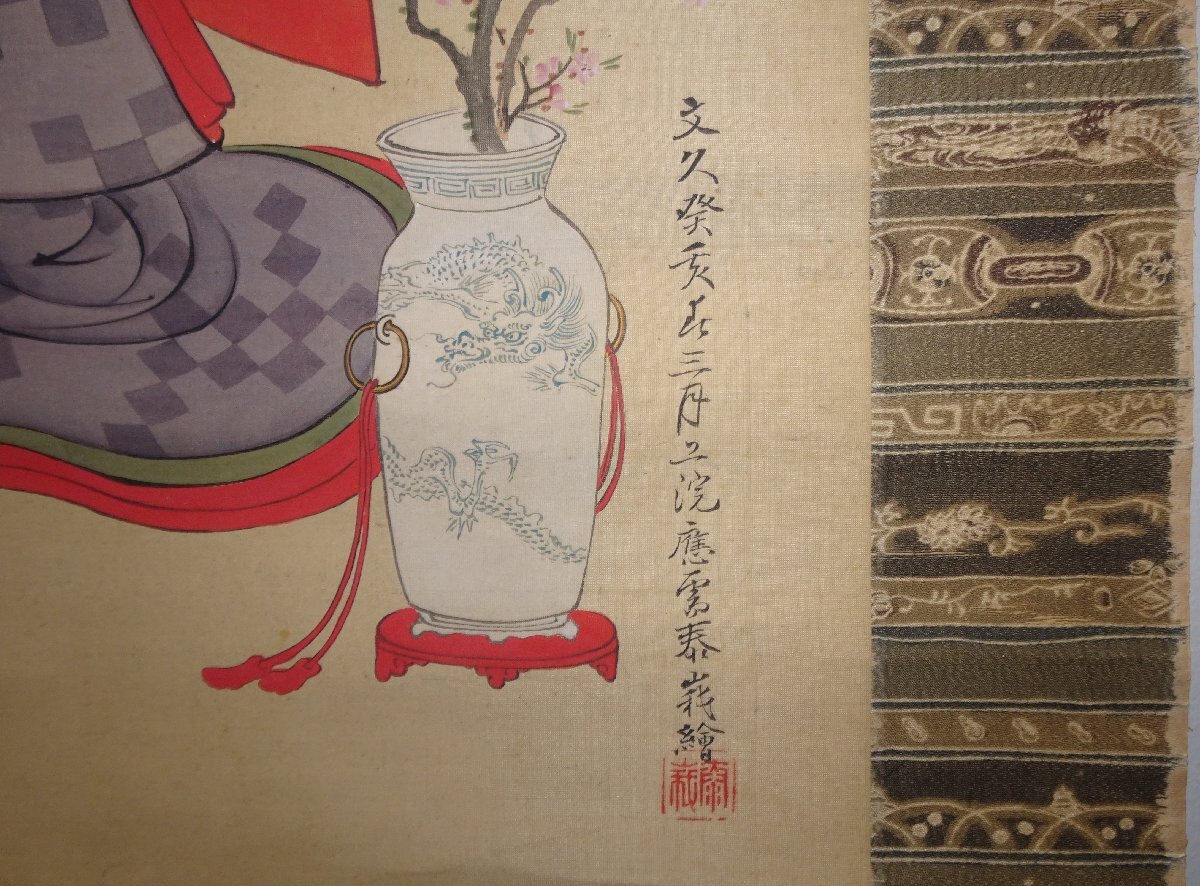 文久癸亥春三月上浣應需泰峩繪